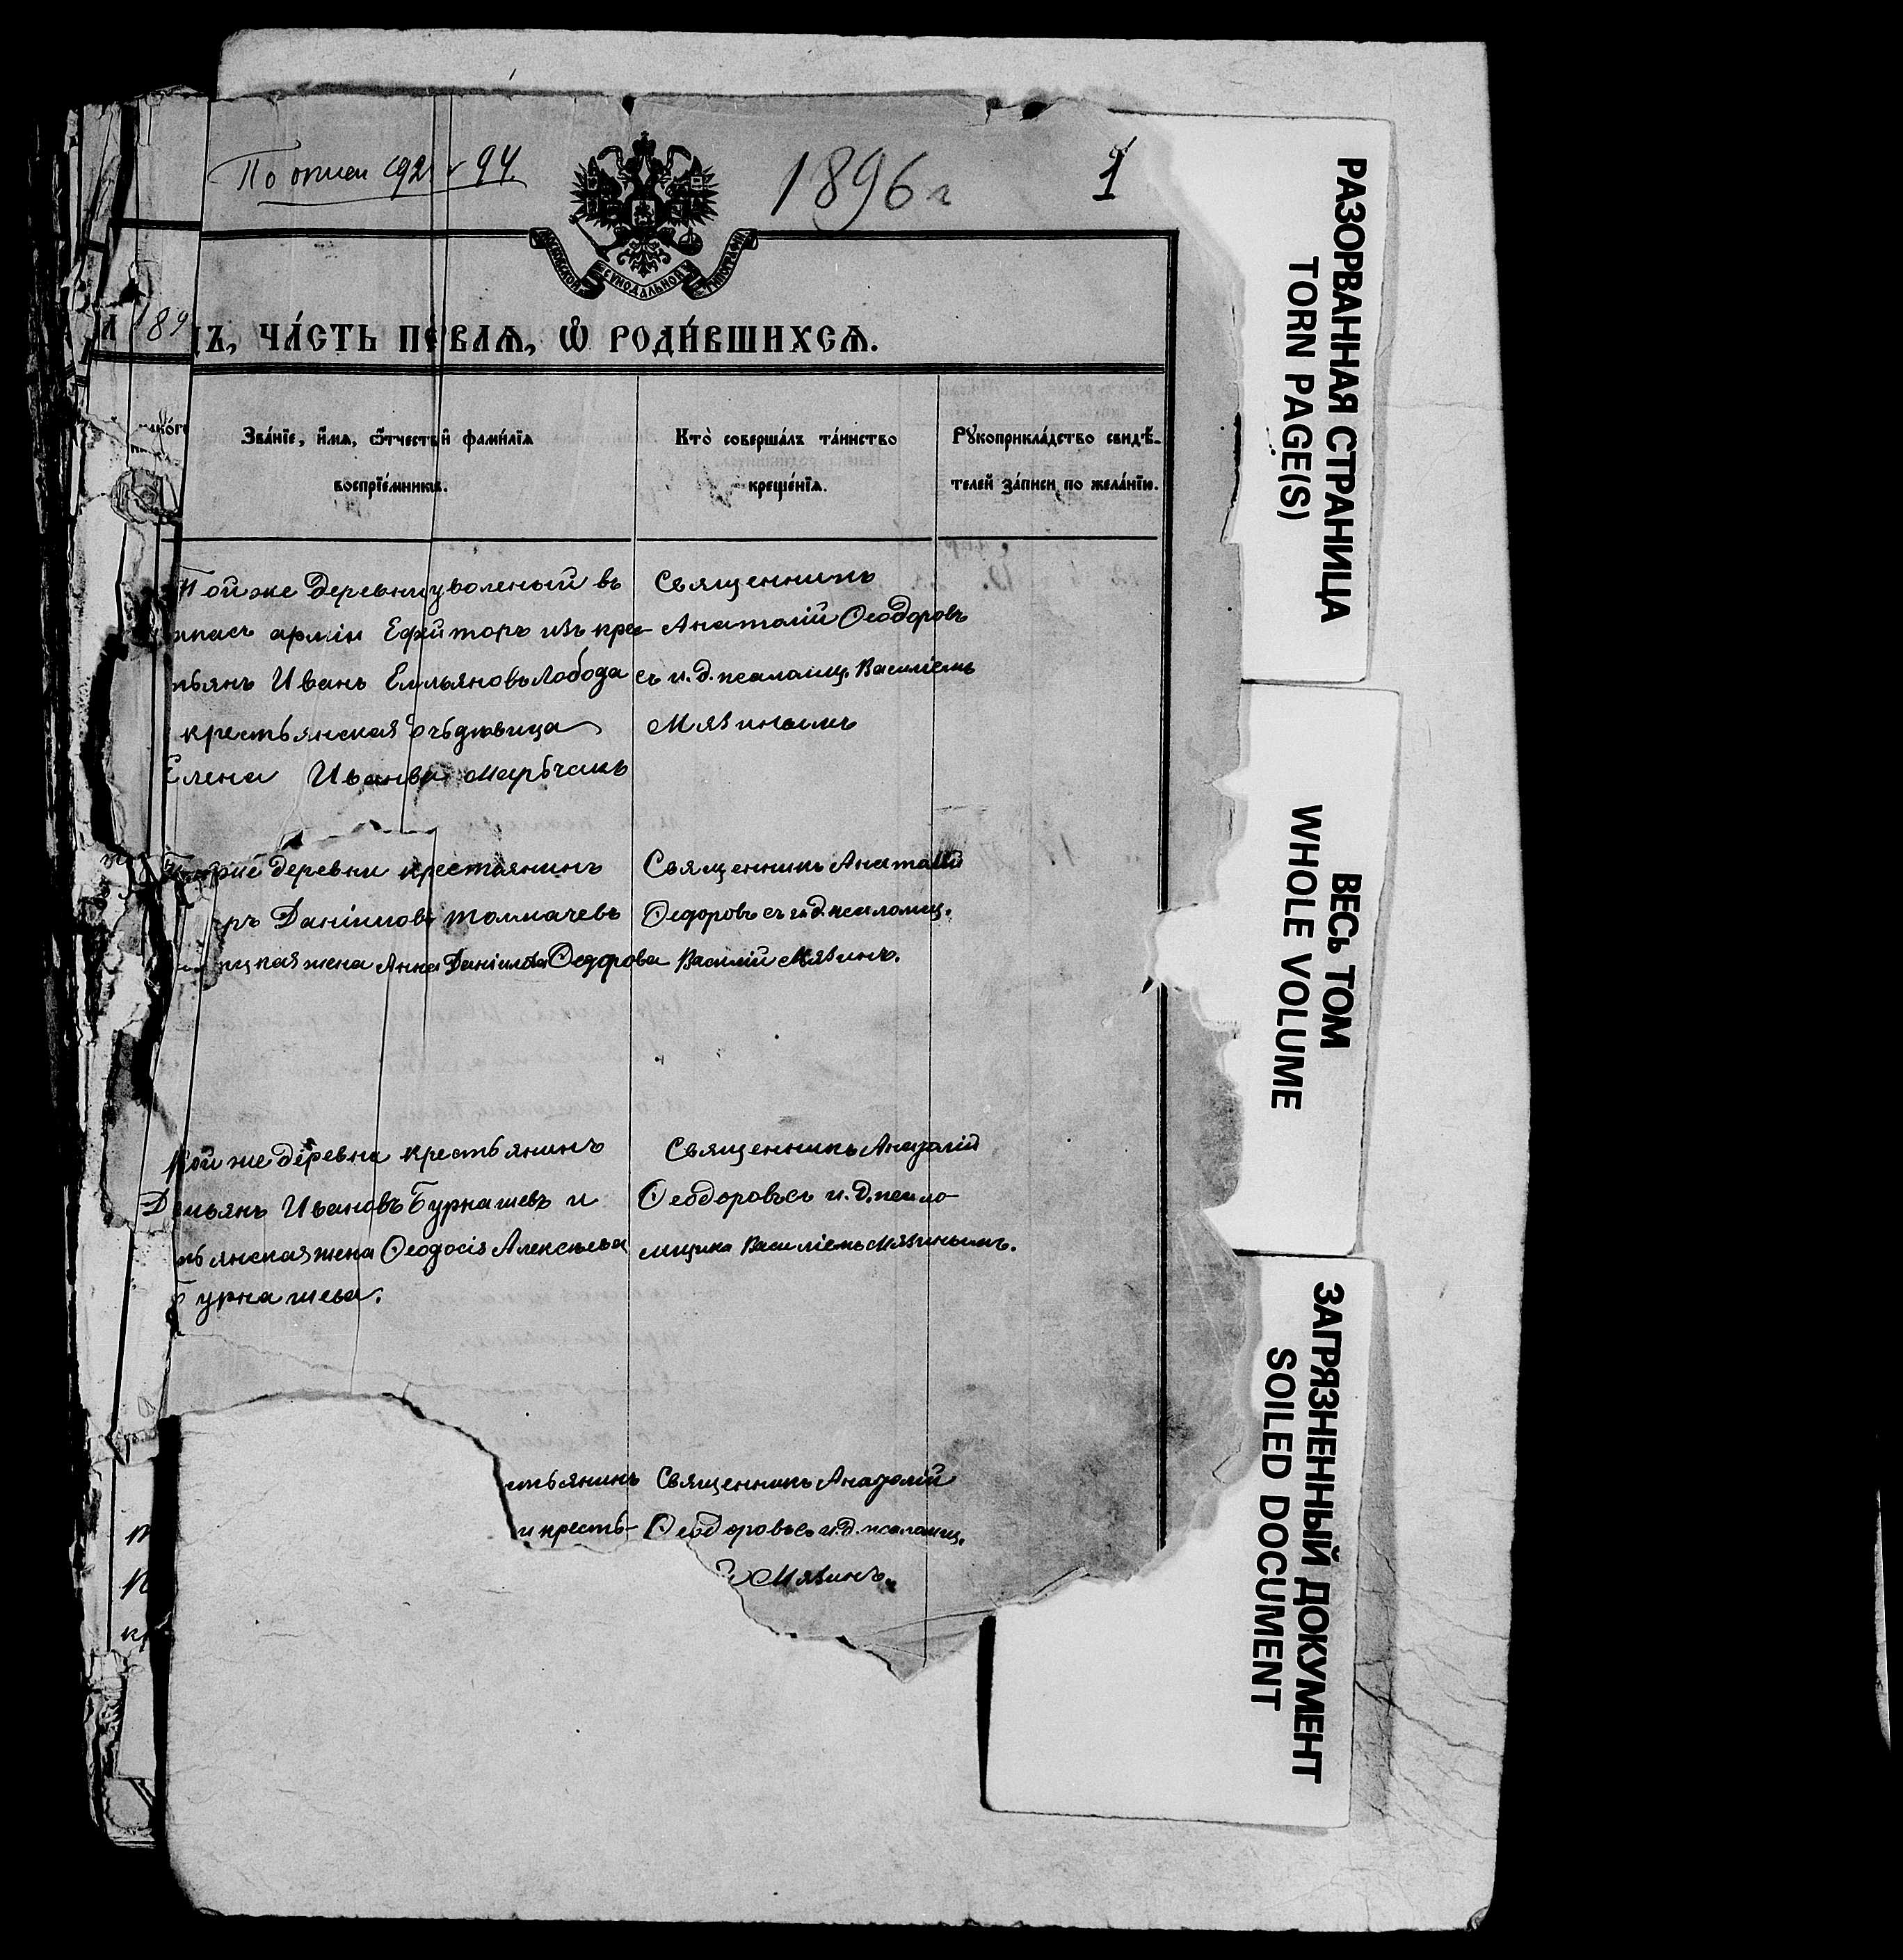 По описи 192 94.
1896 г
1
МОСКОВСКОЙ СУНОДАЛЬНОЙ ТИПОГРАФІИ
189
ЧА́СТЬ ПЕ́РВАѦ, Ѡ҆ РОДИ́ВШИХСѦ.
Зва́нїе, и҆́мѧ, ѻ҆́тчество и҆ фами́лїѧ
воспрїе́мникѡвъ.
Кто̀ соверша́лъ та́инство
креще́нїѧ.
Рꙋкоприкла́дство свидѣ́-
телей за́писи по жела́нїю.
Той же деревни уволеный въ
запасъ арміи Ефрйторъ изъ крес-
тьянъ Иванъ Емльяновъ Лобода
крестьянская дѣвица
Елена Иванва Марьчакъ
Священникъ
Анатолій Ѳеодоровъ
съ и. д. псаломщ. Василіемъ
Мязинымъ
деревни крестьянинъ
Даніиловъ Толмачевъ
жена Анна Даніилова Ѳедорова
Священникъ Анатолій
Ѳедоровъ съ и. д. псаломщ.
Василій Мязинъ.
Той же деревни крестьянинъ
Демьянъ Ивановъ Бурнашевъ и
тьянская жена Ѳеодосія Алексѣева
Бурнашева.
Священникъ Анатолій
Ѳеодоровъ съ и. д. псало-
мщика Василіемъ Мязинымъ.
стьянинъ
и кресть-
Священникъ Анатолій
Ѳеодоровъ съ и. д. псаломщ.
Мязинъ.
РАЗОРВАННАЯ СТРАНИЦА
TORN PAGE(S)
ВЕСЬ ТОМ
WHOLE VOLUME
ЗАГРЯЗНЕННЫЙ ДОКУМЕНТ
SOILED DOCUMENT